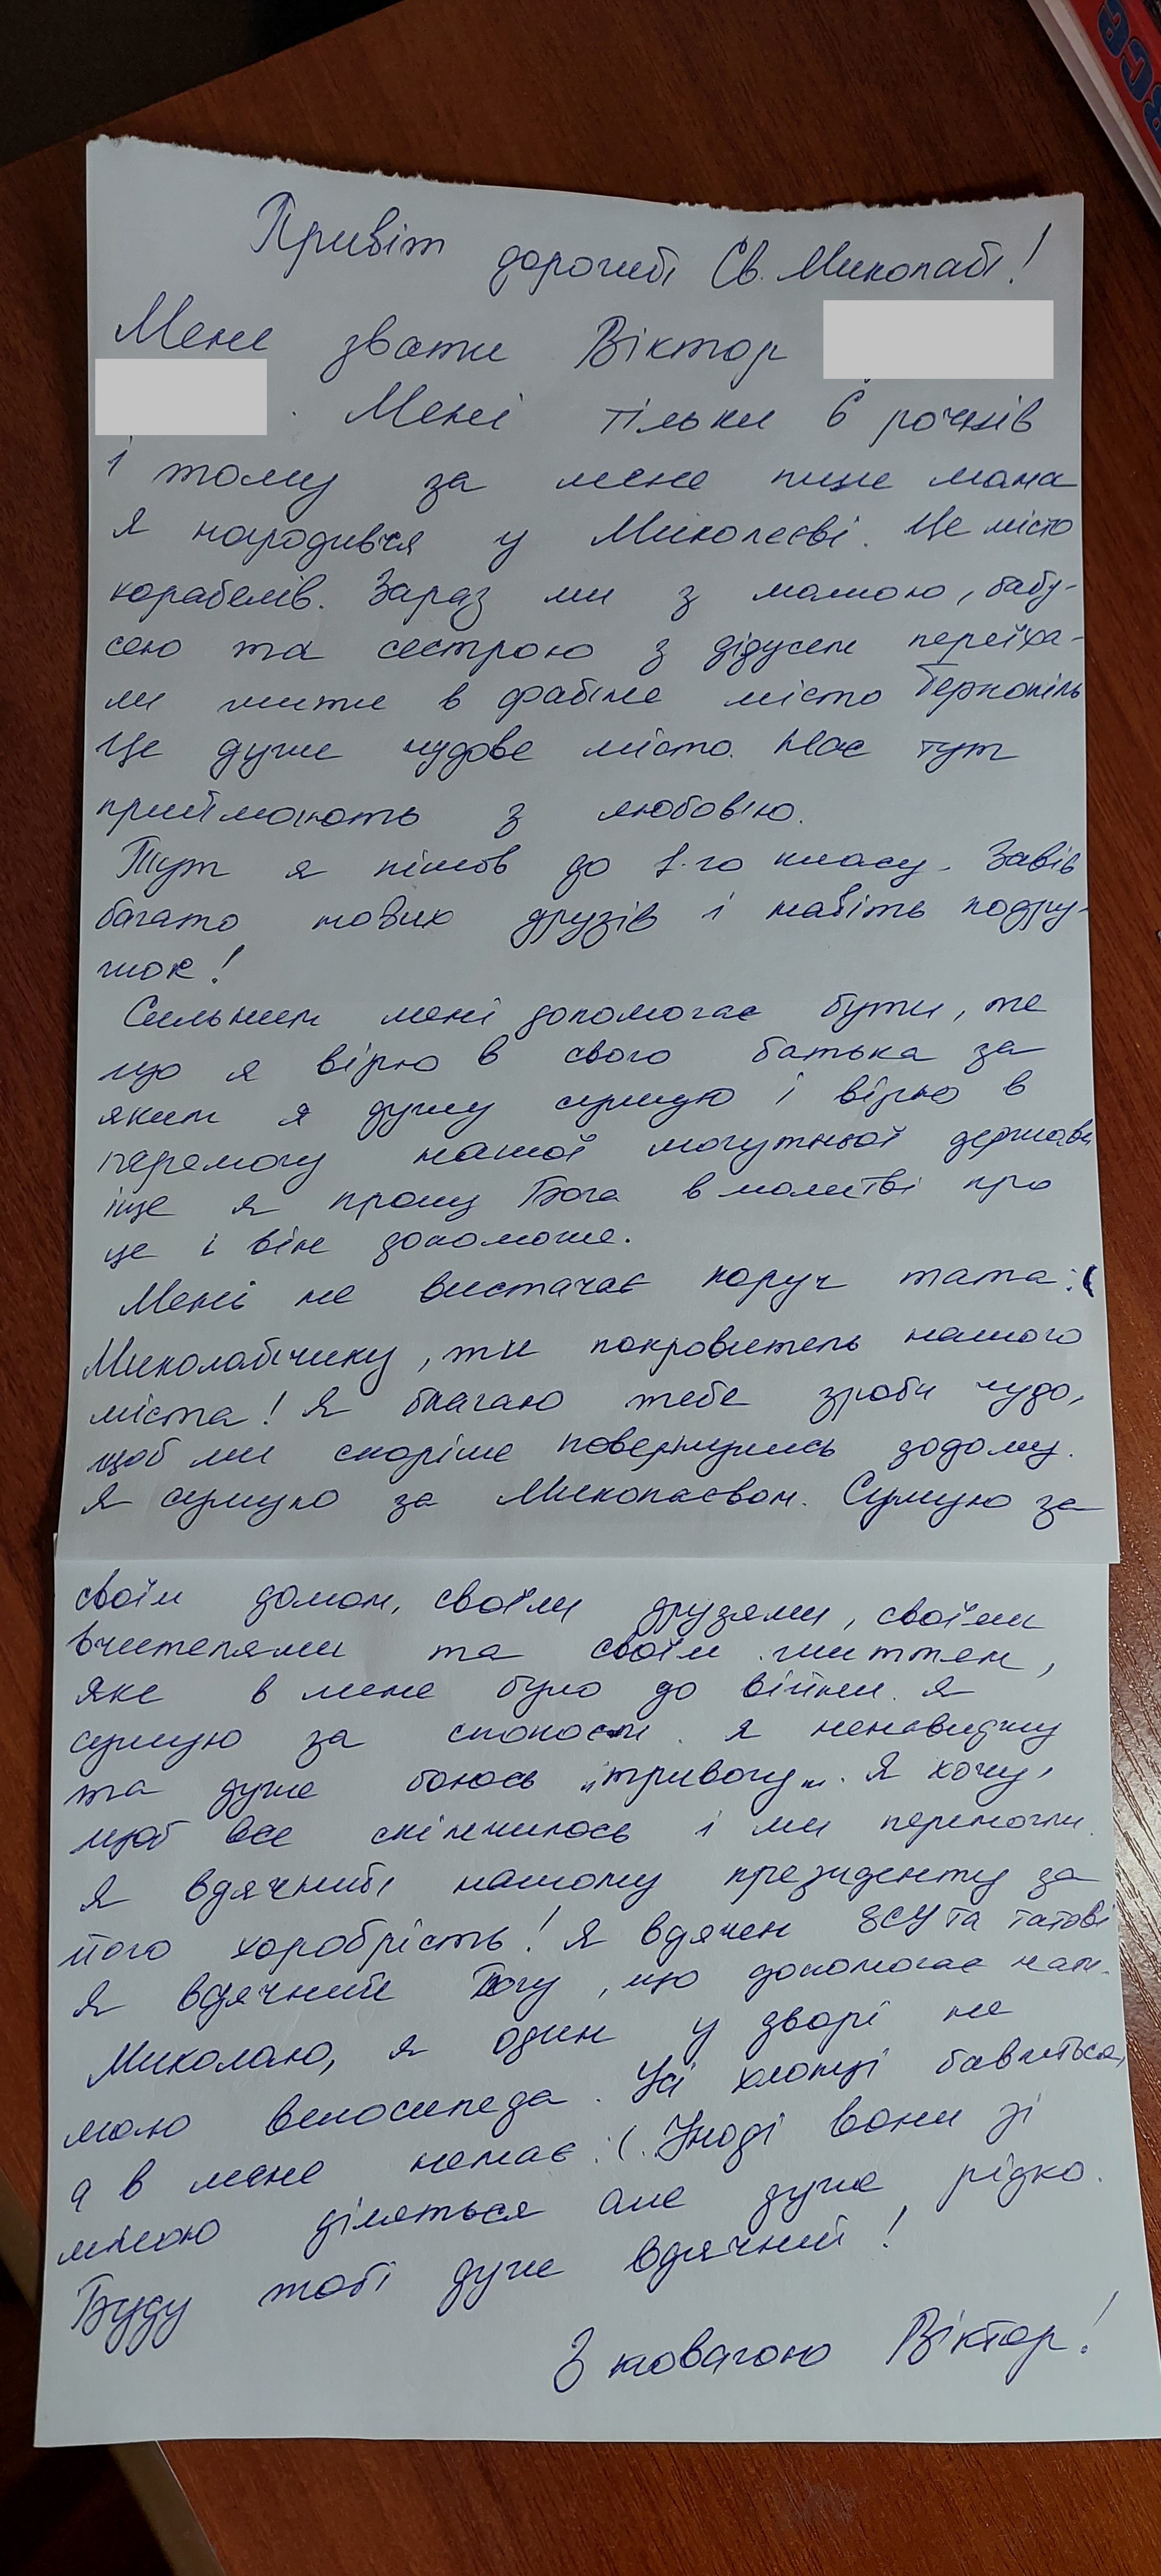 ВСЕ
Привіт дорогий Св. Миколай!
Мене звати Віктор
. Мені тільки 6 рочків
і тому за мене пише мама
Я народився у Миколаєві. Це місто
корабелів. Зараз ми з мамою, бабу-
сею та сестрою з дідусем переїха-
ли жити в файне місто Тернопіль
Це дуже чудове місто. Нас тут
приймають з любовію.
Тут я пішов до 1-го класу. Завів
багато нових друзів і навіть подру-
жок!
Сильним мені допомагає бути, те
що я вірю в свого батька за
яким я дужу сумую і вірю в
перемогу нашої могутньої держави
іще я прошу Бога в молитві про
це і він допоможе.
Мені не вистачає поруч тата :(
Миколайчику, ти покровитель нашого
міста! Я благаю тебе зроби чудо,
щоб ми скоріше повернулись додому.
Я сумую за Миколаєвом. Сумую за
своїм домом, своїми друзями, своїми
вчителями та своїм життям,
яке в мене було до війни. Я
сумую за спокоєм. Я ненавиджу
та дуже боюсь „тривогу". Я хочу,
щоб все скінчилось і ми перемогли.
Я вдячний нашому президенту за
його хоробрість! Я вдячен ЗСУ та татові
Я вдячний Богу, що допомогає нам.
Миколаю, я один у дворі не
маю велосипеда. Усі хлопці бавляться,
а в мене немає :(. Іноді вони зі
мною діляться але дуже рідко.
Буду тобі дуже вдячний!
З повагою Віктор!